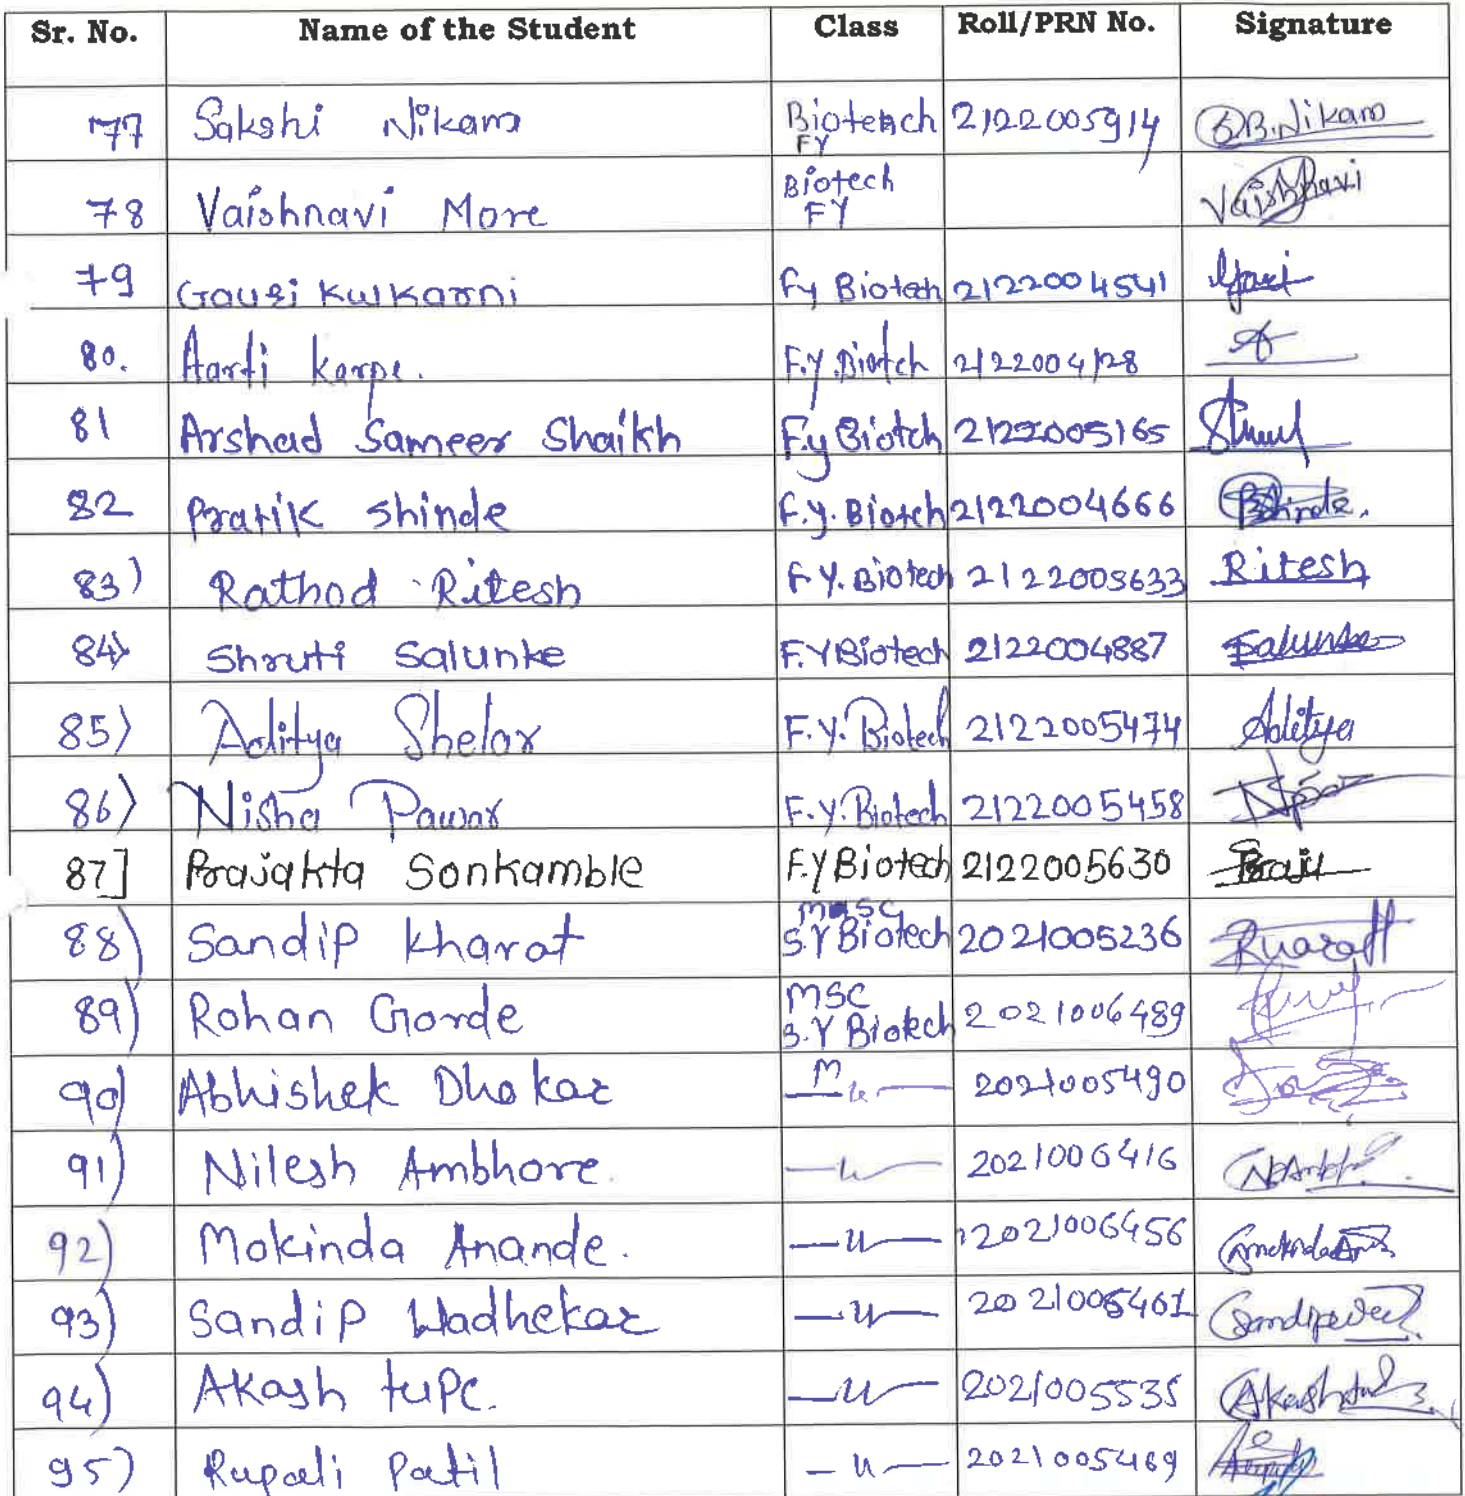 Sr. No. Name of the Student Class Roll/PRN No. Signature
77 Sakshi Nikam Biotech FY 2122005914 S.B.Nikam
78 Vaishnavi More Biotech FY Vaishnavi
79 Gauri Kulkarni Fy Biotech 2122004541 Gauri
80. Aarti Karpe. F.y.Biotch 2122004128
81 Arshad Sameer Shaikh F.y Biotch 2122005165
82 Pratik Shinde F.y. Biotch 2122004666 Shinde.
83) Rathod Ritesh F.Y. Biotech 2122005633 Ritesh
84) Shruti Salunke F.Y Biotech 2122004887 Salunke
85) Aditya Shelar F.Y. Biotech 2122005474 Aditya
86) Nisha Pawar F.Y. Biotech 2122005458
87] Prajakta Sonkamble F.Y Biotech 2122005630 Praju
88) Sandip Kharat MSC S.Y Biotech 2021005236 Kharat
89) Rohan Gorde MSC S.Y Biotech 2021006489
90) Abhishek Dhakar —〃— 2021005490
91) Nilesh Ambhore. —〃— 2021006416
92) Mokinda Anande. —〃— 2021006456
93) Sandip Wadhekar —〃— 2021005461
94) Akash tupe. —〃— 2021005535
95) Rupali Patil —〃— 2021005469